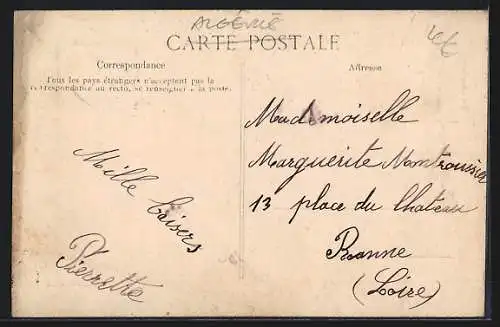 ALGÉRIE
CARTE POSTALE
Correspondance
Tous les pays étrangers n'acceptent pas la
correspondance au recto, se renseigner à la poste.
Mille baisers
Pierrette
Adresse
Mademoiselle
Marguerite
13 place du Chateau
Roanne
(Loire)